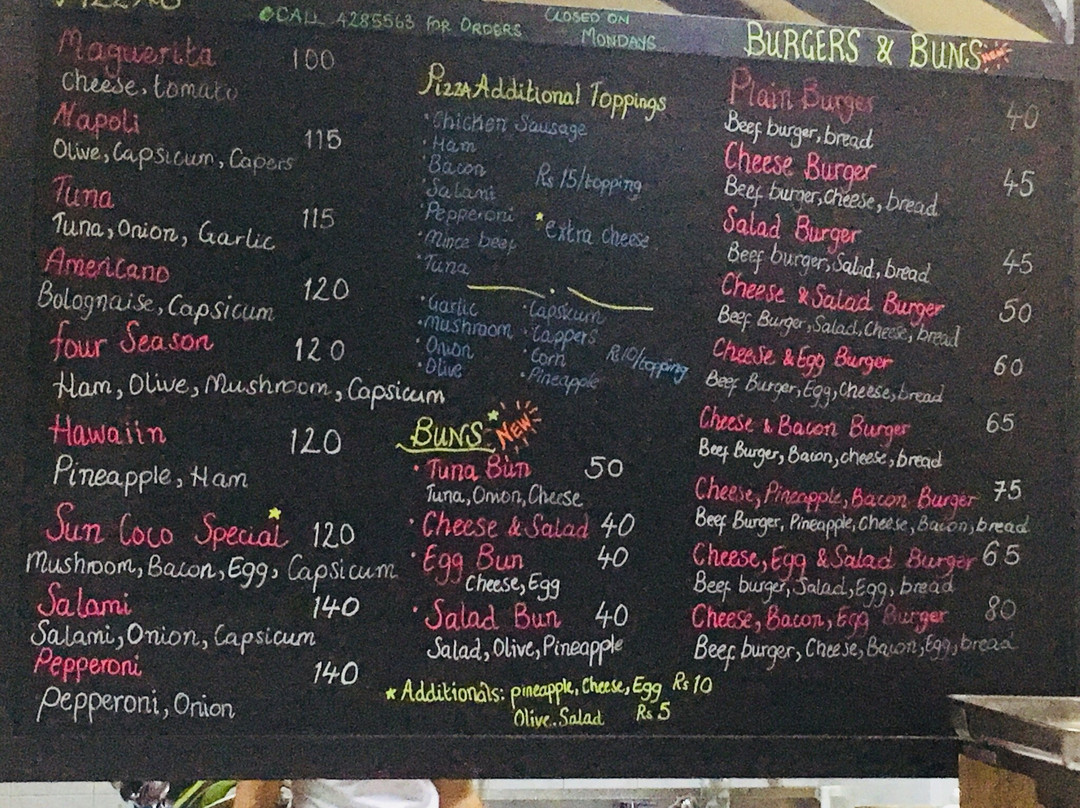 CALL 4285563 FOR ORDERS
CLOSED ON
MONDAYS
Maguerita 100
Cheese, tomato
Napoli 115
Olive, Capsicum, Capers
Tuna 115
Tuna, Onion, Garlic
Americano 120
Bolognaise, Capsicum
four Season 120
Ham, Olive, Mushroom, Capsicum
Hawaiin 120
Pineapple, Ham
Sun Coco Special 120
Mushroom, Bacon, Egg, Capsicum
Salami 140
Salami, Onion, Capsicum
Pepperoni 140
Pepperoni, Onion
PIZZA Additional Toppings
Chicken Sausage
Ham
Bacon
Salami
Pepperoni
Mince beef
Tuna
Rs 15/topping
*extra cheese
Garlic
Mushroom
Onion
Olive
Capsicum
Cappers
Corn
Pineapple
Rs10/topping
BUNS NEW
Tuna Bun 50
Tuna, Onion, Cheese
Cheese & Salad 40
Egg Bun 40
Cheese, Egg
Salad Bun 40
Salad, Olive, Pineapple
* Additionals: pineapple, Cheese, Egg Rs 10
Olive. Salad Rs 5
BURGERS & BUNS NEW
Plain Burger 40
Beef burger, bread
Cheese Burger 45
Beef burger, cheese, bread
Salad Burger 45
Beef burger, Salad, bread
Cheese & Salad Burger 50
Beef Burger, Salad, Cheese, bread
Cheese & Egg Burger 60
Beef Burger, Egg, Cheese, bread
Cheese & Bacon Burger 65
Beef Burger, Bacon, cheese, bread
Cheese, Pineapple, Bacon Burger 75
Beef Burger, Pineapple, Cheese, Bacon, bread
Cheese, Egg & Salad Burger 65
Beef burger, Salad, Egg, bread
Cheese, Bacon, Egg Burger 80
Beef burger, Cheese, Bacon, Egg, bread